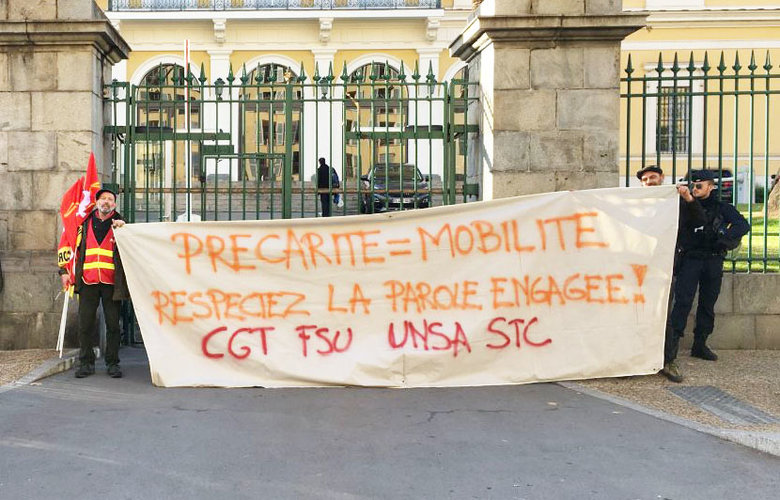 PRECARITE = MOBILITE
RESPECTEZ LA PAROLE ENGAGEE !
CGT FSU UNSA STC